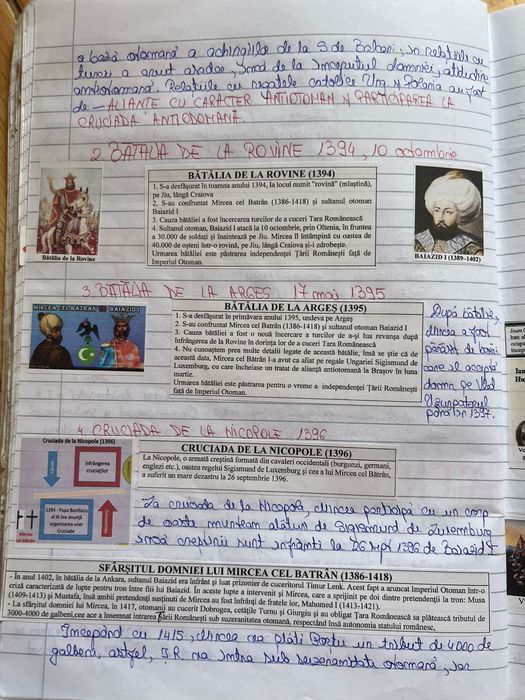 o bază otomană a achingiilor de la S de Balcani, în relațiile cu
turcii a avut două, încă de la începutul domniei, atitudine
antiotomană. Relațiile cu regatele catolice Ung și Polonia au fost
de - ALIANTE CU CARACTER ANTIOTOMAN și PARTICIPAREA LA
CRUCIADA ANTIOTOMANĂ.
2. BATALIA DE LA ROVINE 1394, 10 octombrie
BĂTĂLIA DE LA ROVINE (1394)
1. S-a desfășurat în toamna anului 1394, la locul numit "rovină" (mlaștină),
pe Jiu, lângă Craiova
2. S-au confruntat Mircea cel Batrân (1386-1418) și sultanul otoman
Baiazid I
3. Cauza bătăliei a fost încercarea turcilor de a cuceri Tara Românească
4. Sultanul otoman, Baiazid I atacă la 10 octombrie, prin Oltenia, în fruntea
a 30.000 de soldați și înaintează pe Jiu. Mircea îl întâmpină cu oastea de
40.000 de oșteni într-o rovină, pe Jiu, lângă Craiova și-i zdrobește.
Urmarea bătăliei este păstrarea independenței Țării Românești față de
Imperiul Otoman.
Bătălia de la Rovine
BAIAZID I (1389-1402)
3. BATALIA DE LA ARGEȘ 17 mai 1395
MIRCEA CEL BATRÂN
BAIAZID I
BĂTĂLIA DE LA ARGEȘ (1395)
1. S-a desfășurat în primăvara anului 1395, undeva pe Argeș
2. S-au confruntat Mircea cel Batrân (1386-1418) și sultanul otoman Baiazid I
3. Cauza bătăliei a fost o nouă încercare a turcilor de a-și lua revanșa după
înfrângerea de la Rovine în dorința lor de a cuceri Tara Românească
4. Nu cunoaștem prea multe detalii legate de această bătălie, însă se știe că de
această data, Mircea cel Bătrân l-a avut ca aliat pe regale Ungariei Sigismund de
Luxemburg, cu care încheiase un tratat de alianță antiotomană la Brașov în luna
martie.
Urmarea bătăliei este păstrarea pentru o vreme a independenței Țării Românești
față de Imperiul Otoman.
După bătălie,
Mircea a fost
părăsit de boieri
care al acceptă
domn pe Vlad
Uzurpatorul
până în 1397.
4. CRUCIADA DE LA NICOPOLE 1396
Cruciada de la Nicopole (1396)
Cauze
Înfrângerea
cruciaților
1394 - Papa Bonifaciu
al IX-lea anunță
organizarea unei
Cruciade
CRUCIADA DE LA NICOPOLE (1396)
La Nicopole, o armată creștină formată din cavaleri occidentali (burgunzi, germani,
englezi etc.), oastea regelui Sigismund de Luxemburg și cea a lui Mircea cel Bătrân,
a suferit un mare dezastru la 26 septembrie 1396.
La cruciada de la Nicopole, Mircea participă cu un corp
de oaste muntean alături de Sigismund de Luxemburg
însă creștinii sunt înfrânți la 26 sept 1396 de Baiazid I
SFÂRȘITUL DOMNIEI LUI MIRCEA CEL BATRÂN (1386-1418)
- În anul 1402, în bătălia de la Ankara, sultanul Baiazid era înfrânt și luat prizonier de cuceritorul Timur Lenk. Acest fapt a aruncat Imperiul Otoman într-o
criză caracterizată de lupte pentru tron între fiii lui Baiazid. În aceste lupte a intervenit și Mircea, care a sprijinit pe doi dintre pretendenții la tron: Musa
(1409-1413) și Mustafa, însă ambii pretendenți susținuți de Mircea au fost înfrânți de fratele lor, Mahomed I (1413-1421).
- La sfârșitul domniei lui Mircea, în 1417, otomanii au cucerit Dobrogea, cetățile Turnu și Giurgiu și au obligat Țara Românească sa plătească tributul de
3000-4000 de galbeni, cee ace a însemnat intrarea Țării Românești sub suzeranitatea otomană, respectând însă autonomia statului românesc.
Începând cu 1415, Mircea va plăti Porții un tribut de 4000 de
galbeni, astfel, Ț.R. va intra sub suzeranitate otomană, iar